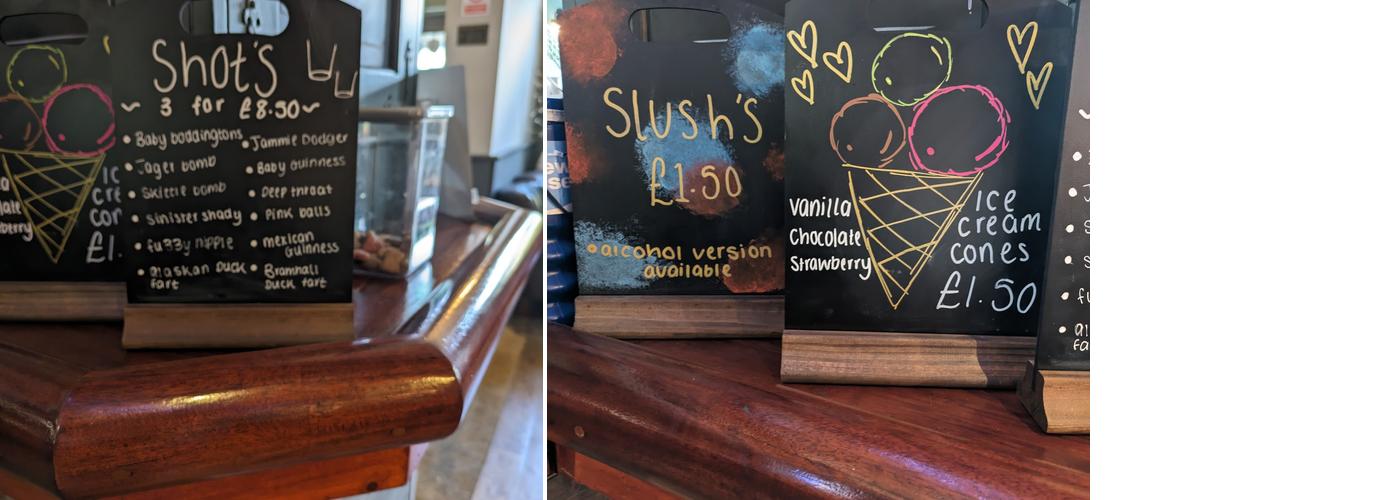 Shot's
~ 3 for £8.50 ~
• Baby boddingtons
• Jager bomb
• Skittle bomb
• sinister shady
• fuzzy nipple
• alaskan Duck
fart
• Jammie Dodger
• Baby Guinness
• Deep throat
• Pink balls
• mexican
Guinness
• Bramhall
Duck fart
Slush's
£1.50
• alcohol version
available
Vanilla
Chocolate
Strawberry
Ice
cream
cones
£1.50